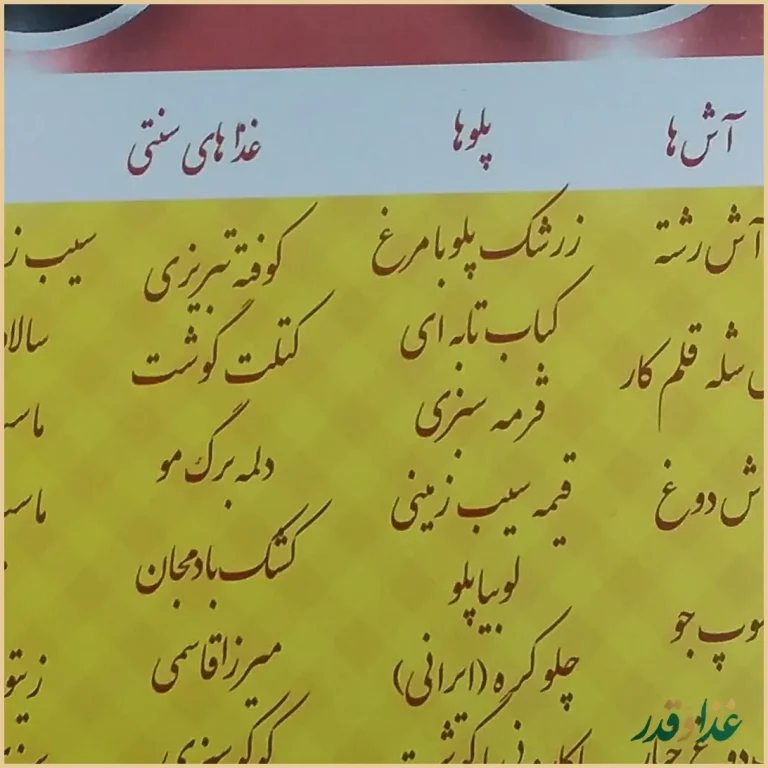 آش‌ها
پلوها
غذاهای سنتی
آش رشته
شله قلم کار
دوغ
جو
زرشک پلو با مرغ
کباب تابه ای
قرمه سبزی
قیمه سیب زمینی
لوبیا پلو
چلو کره (ایرانی)
کوفته تبریزی
کتلت گوشت
دلمه برگ مو
کشک بادمجان
میرزا قاسمی
کوکو سبزی
سیب
غذا و قدر